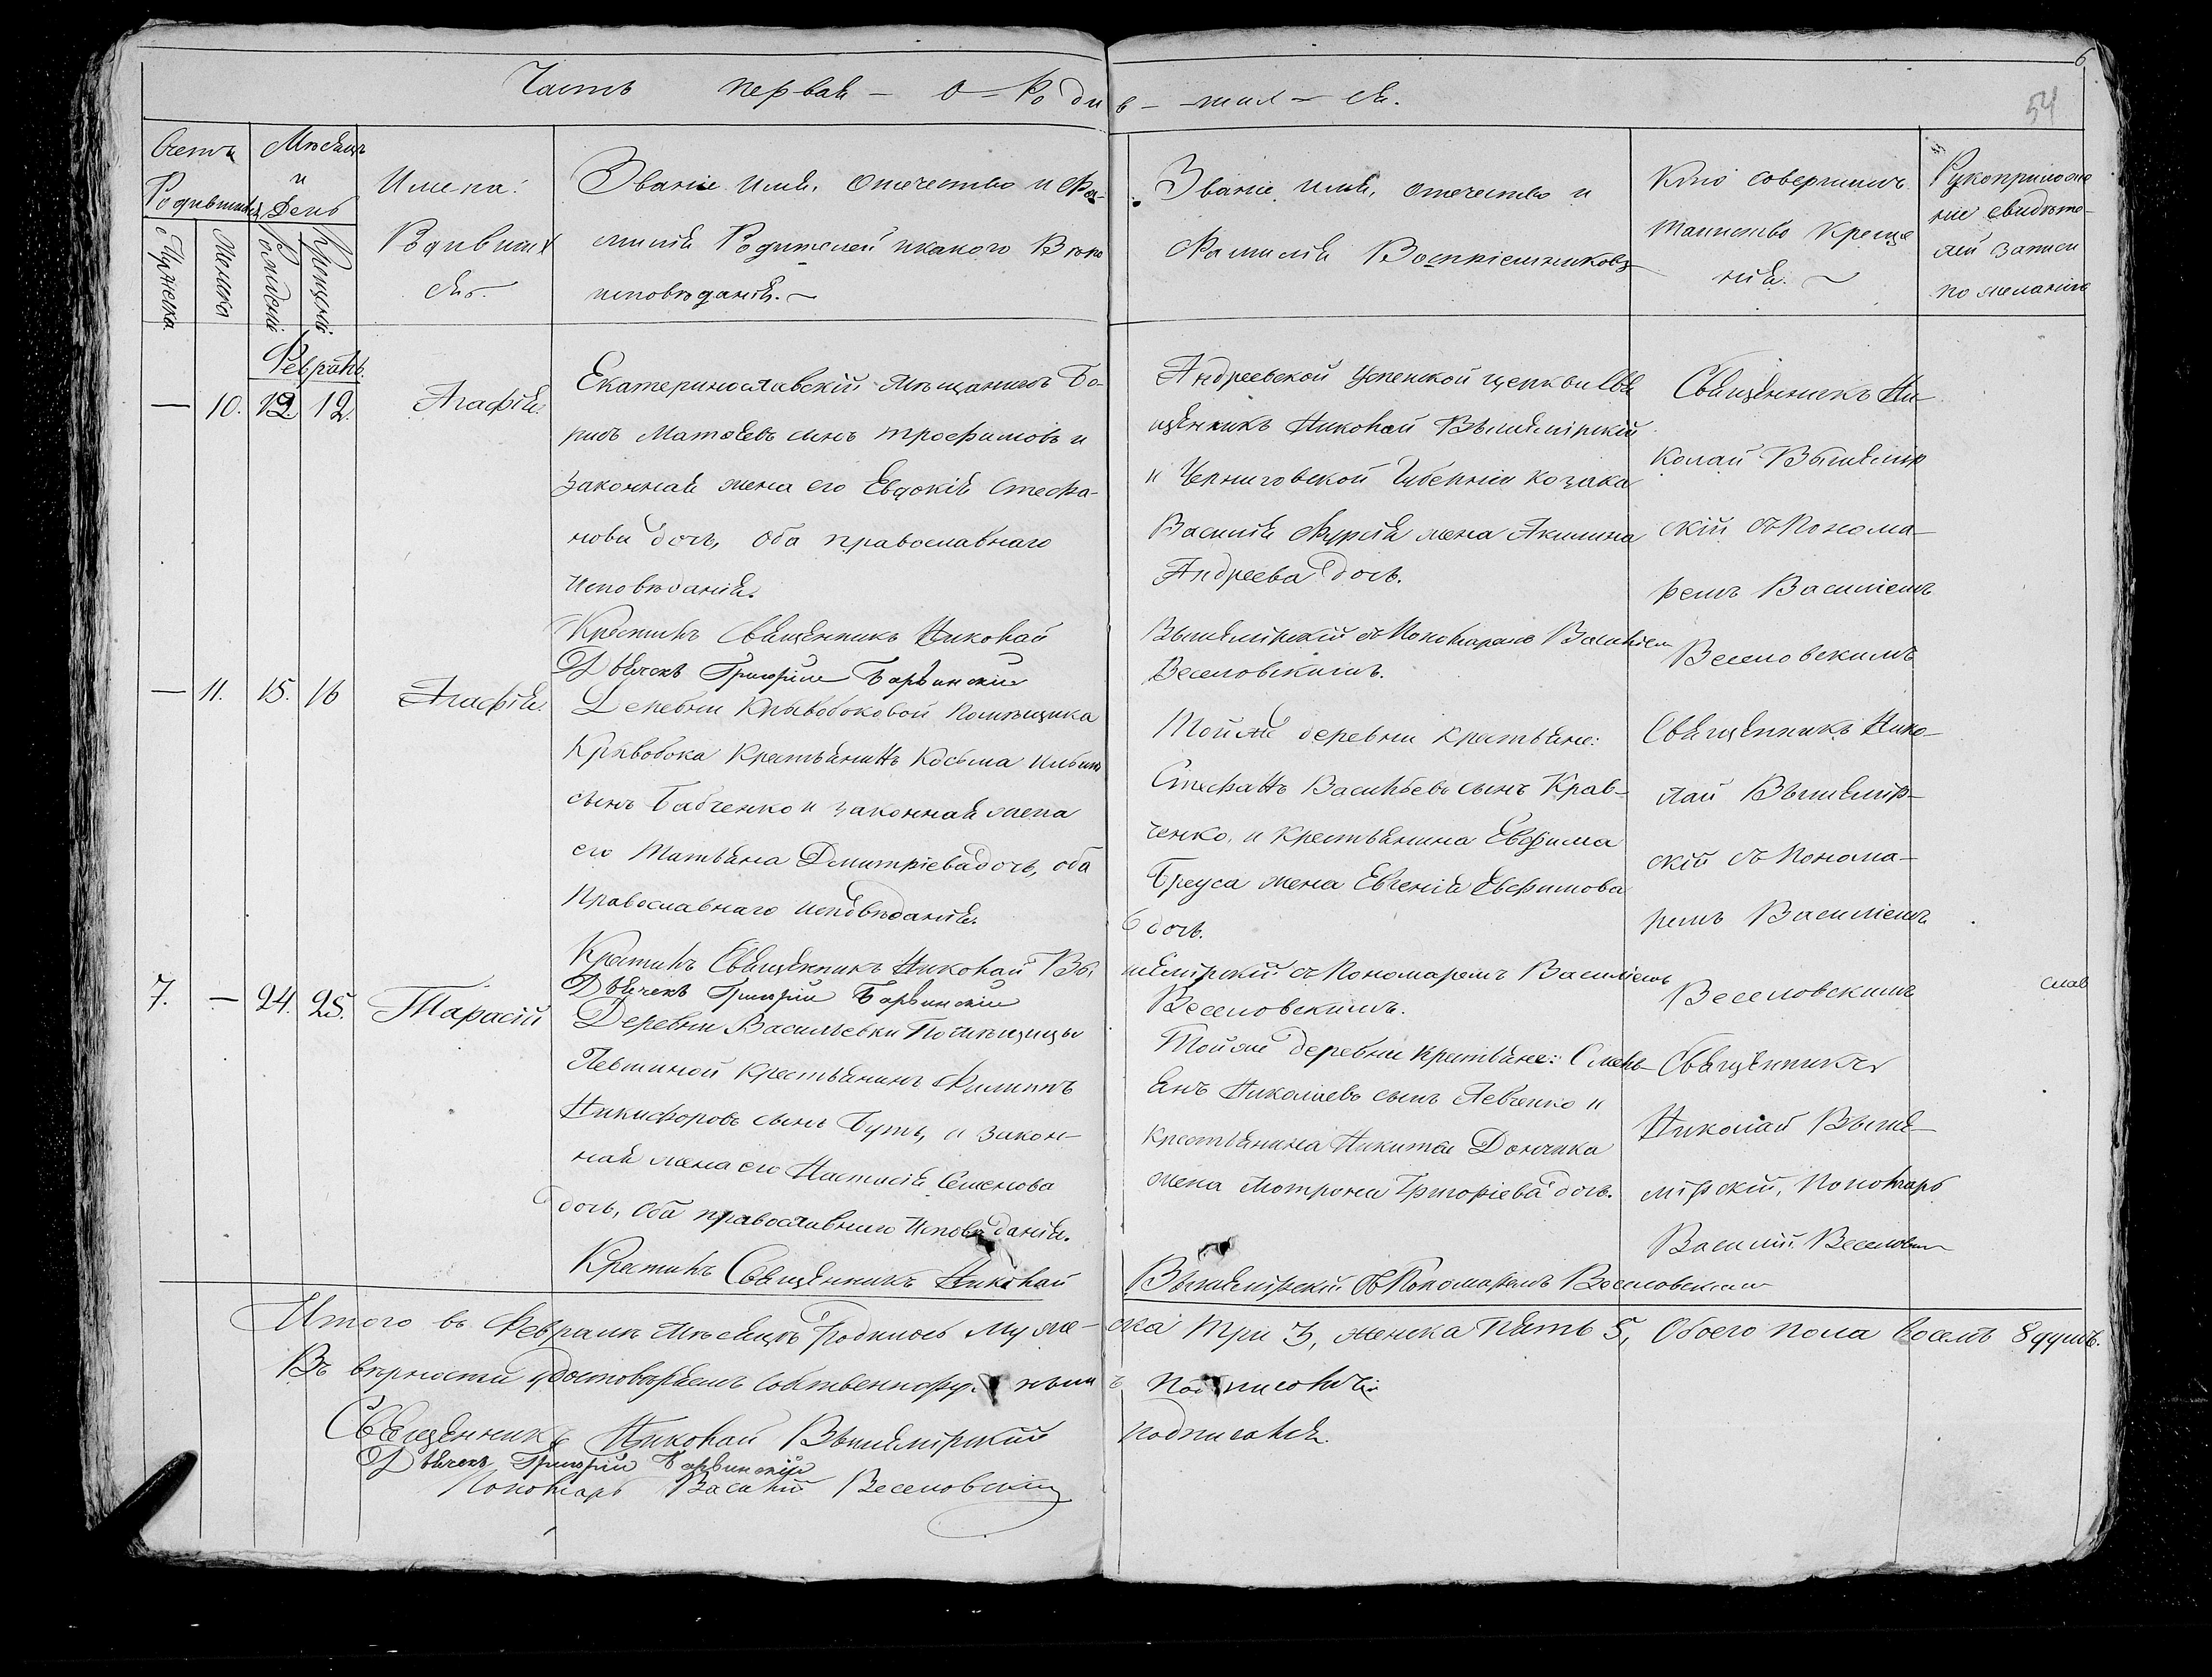 6
54
Часть первая – о – Роди в – шил – ся.
Счетъ Родившихся
Мужеска
Женска
Мѣсяцъ и День
Рожденія
Крещенія
Имена
Родивших
ся.
Званіе имя, отечество и Фа-
милія Родителей и какого Вѣро
исповѣданія. ~
Званіе имя, отечество и
Фамилія Воспріемниковъ
Кто совершилъ
Таинство Креще
нія. ~
Рукоприложе
ніе свидѣте-
лей записи
по желанію
Февраль.
— 10. 12. 12. Агафія.
Екатеринославскій Мѣщанинъ Бо-
рисъ Матѳѣевъ сынъ трофимовъ и
Законная жена его Евдокія Стефа-
нова дочь, Оба православнаго
Исповѣданія.
Крестилъ Священникъ Николай
Дьячекъ Григорій Барвинскій
Андреевской Успенской церкви Свя
щенникъ Николай Вышемірскій
и Черниговской Губерніи козака
Василія Фурсія жена Акилина
Андреева дочь.
Вышемірскій съ Пономаремъ Василіем
Веселовскимъ.
Священникъ Ни-
колай Вышемір
скій съ Понома-
ремъ Василіемъ
Веселовскимъ
— 11. 15. 16 Агафія.
Деревни Кривобоковой Помѣщика
Кривобока Крестьянинъ Косьма Ильинъ
сынъ Бабченко и законная жена
его Татьяна Дмитріева дочь, оба
Православнаго исповѣданія.
Крестилъ Священникъ Николай Вы
Дьячекъ Григорій Барвинскій
Той же деревни крестьяне:
Стефанъ Васильевъ сынъ Крав-
ченко, и крестьянина Евфима
Бреуса жена Евгенія Евфимова
дочь.
шемірскій съ Пономаремъ Василіемъ
Веселовскимъ.
Священникъ Нико-
лай Вышемір-
скій съ Понома-
ремъ Василіемъ
Веселовскимъ
7. — 24. 25. Тарасій
Деревни Васильевки Помѣщицы
Левшиной крестьянинъ Филиппъ
Никифоровъ сынъ Буть, и закон-
ная жена его Настасія Семенова
дочь, Оба православнаго Исповѣданія.
Крестилъ Священникъ Николай
Той же деревни крестьяне:
янъ Николаевъ сынъ Левченко и
крестьянина Никиты Дончика
жена Мотрона Григоріева дочь.
Вышемірскій съ Пономаремъ Веселовским
Священникъ
Николай Выше-
мірскій, Пономарь
Василій Веселовск
слав
Итого въ Февралѣ Мѣсяцѣ Родилось Муже- ска Три 3, женска Пять 5, Обоего пола восемь 8 душъ.
Въ вѣрности удостовѣряемъ собственнору нымъ подписомъ:
Священникъ Николай Вышемірскій подписался.
Дьячекъ Григорій Барвинскій
Пономарь Василій Веселовскій